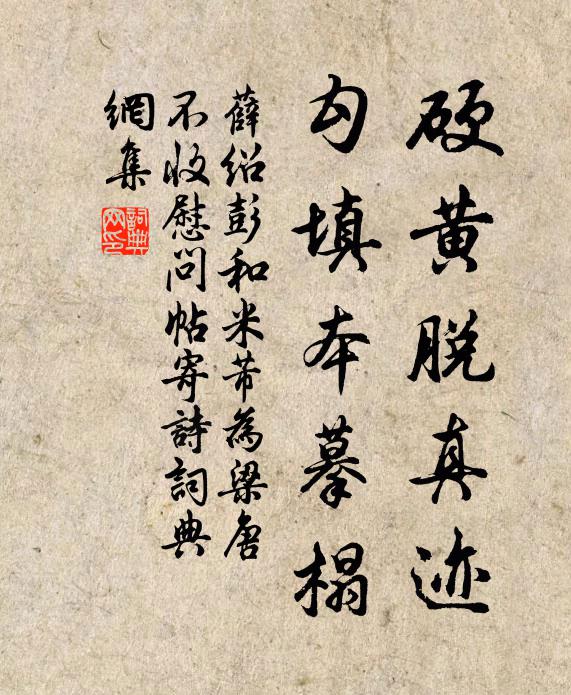 硬黄脱真迹
勾填本摹榻
薛绍彭和米芾為梁唐
不收慰问帖寄詩詞典
網集
詞典
网印